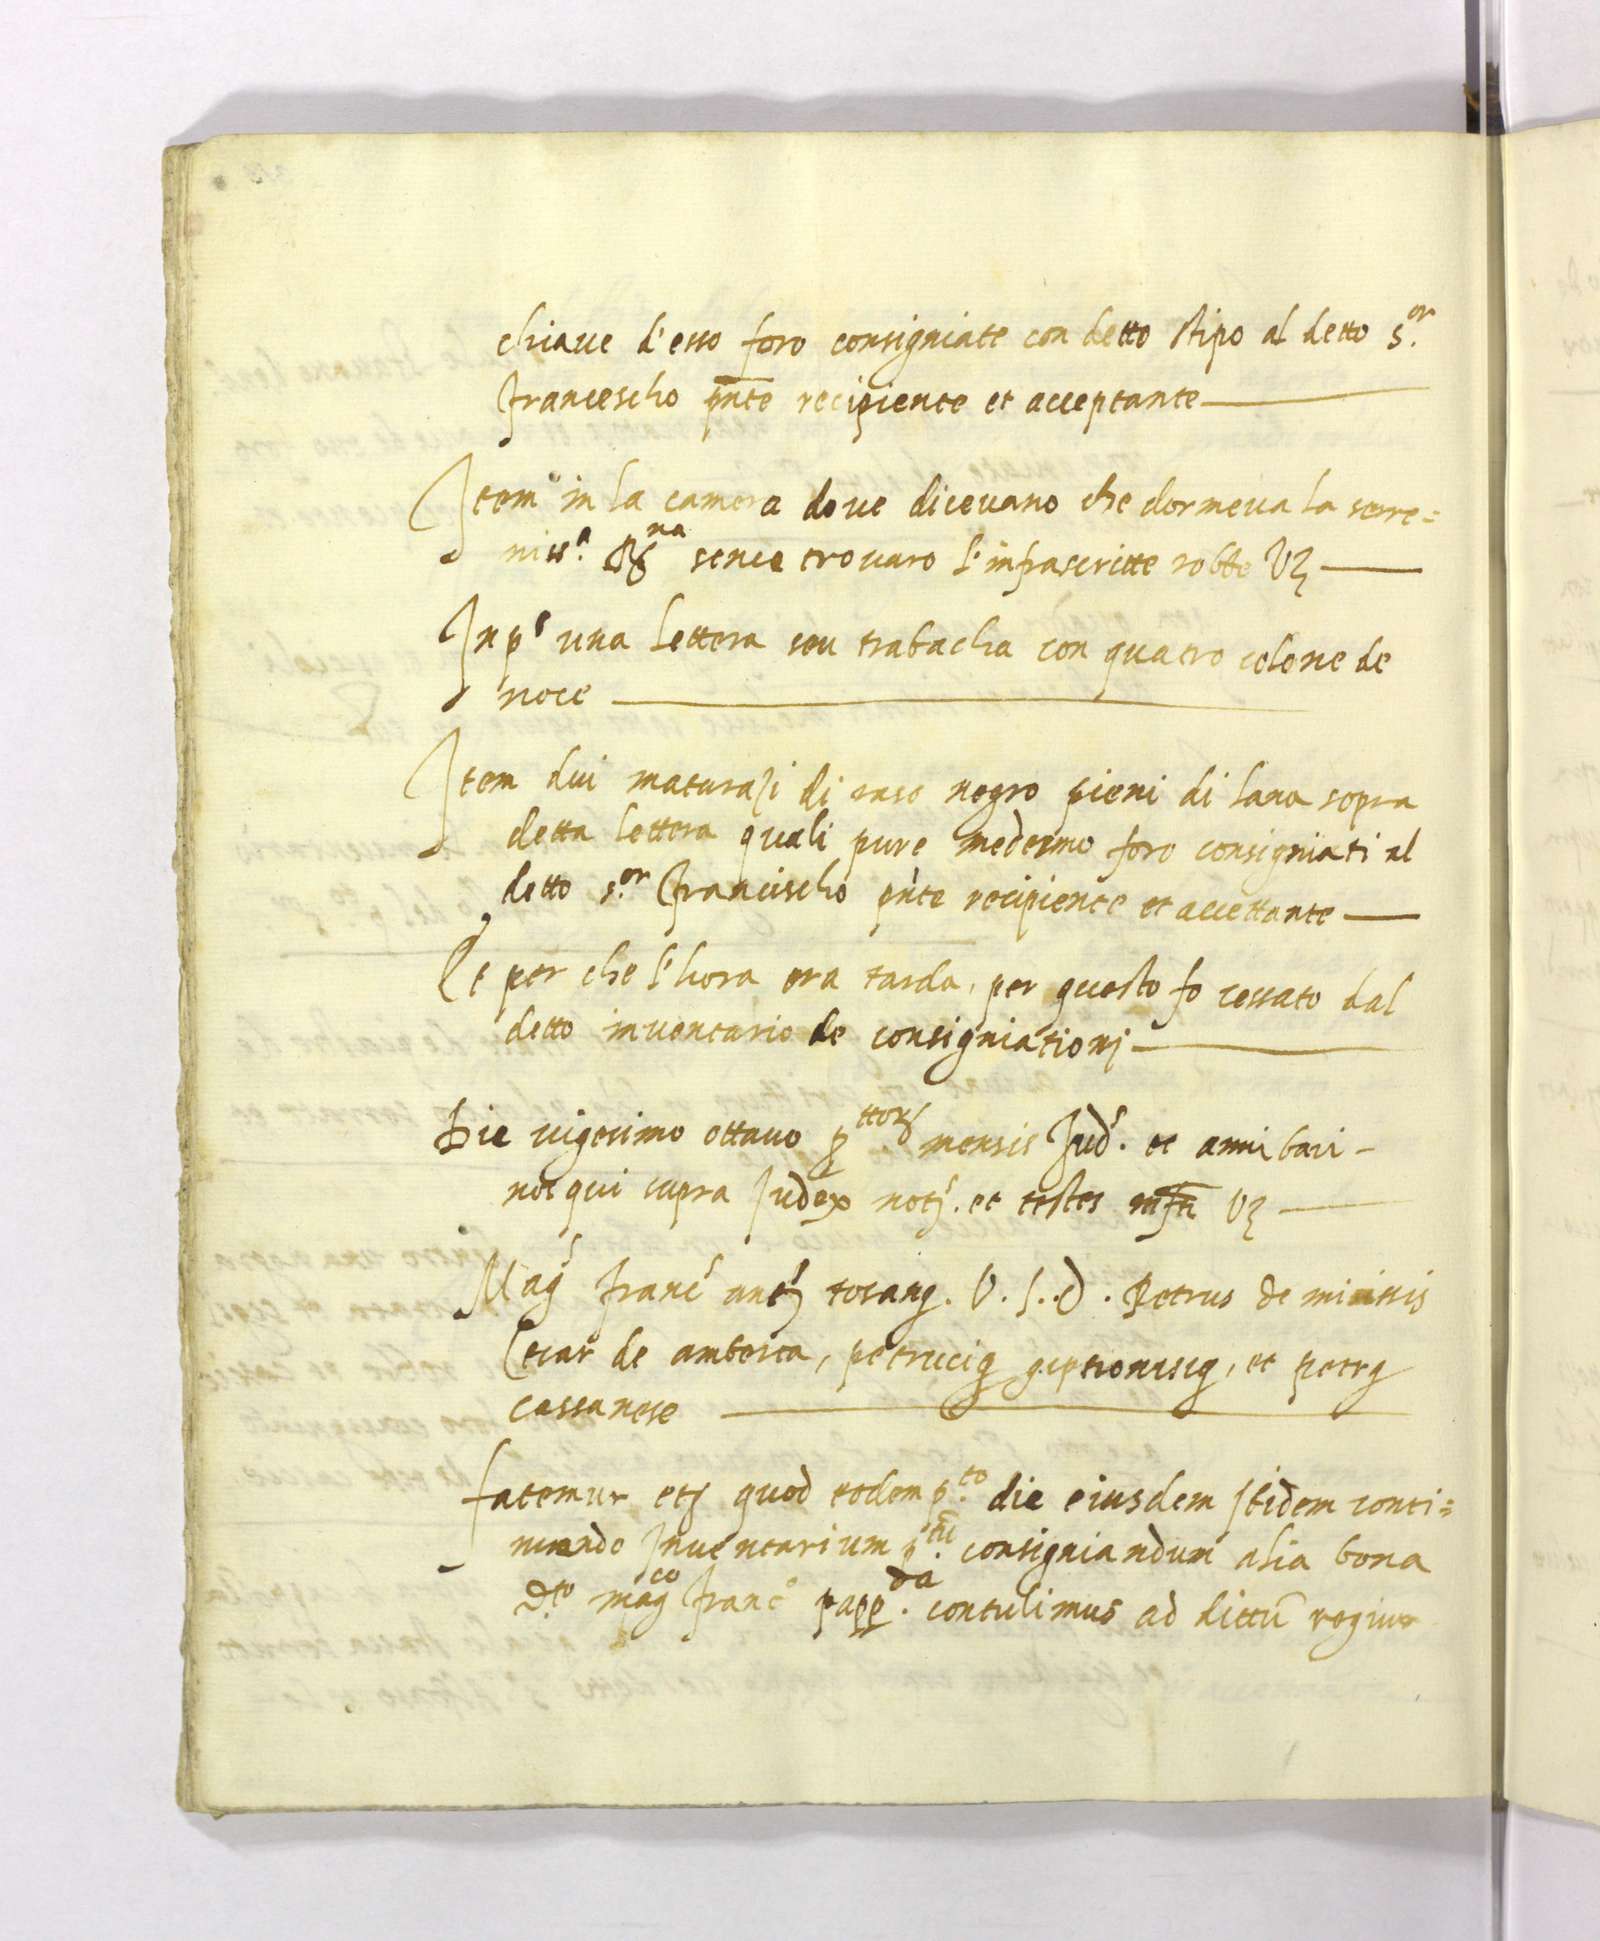 chiave d'esso foro consigniate con detto stipo al detto s.or
francescho pnte recipiente et acceptante
Item in la camera dove dicevano che dormeva la sere=
niss.a Rgna sence trovaro l'infrascritte robbe Vz
In p.s una lettera seu trabacha con quatro colone de
noce
Item dui maturazi di raso negro pieni di lana sopra
detta lettera quali pure medesmo foro consigniati al
detto s.or francischo pnte recipiente et accettante
Et per che l'hora era tarda, per questo fo cessato dal
detto inventario de consigniationi
Die vigesimo ottavo p.ttorum mensis Ind. et anni bari
nos qui supra Judex not. et testes infri Vz
Mag.s franc.s ant.s tosanq. V. J. d. Petrus de minissis
Cesar de ambosca, petrucius, et petrus
cassanese
fatemur etz quod eodem p.to die eiusdem ibidem conti=
nuando Inventarium p.tum consigniandum alia bona
d.to mag.co franc.o papp.da contulimus ad dictu regium